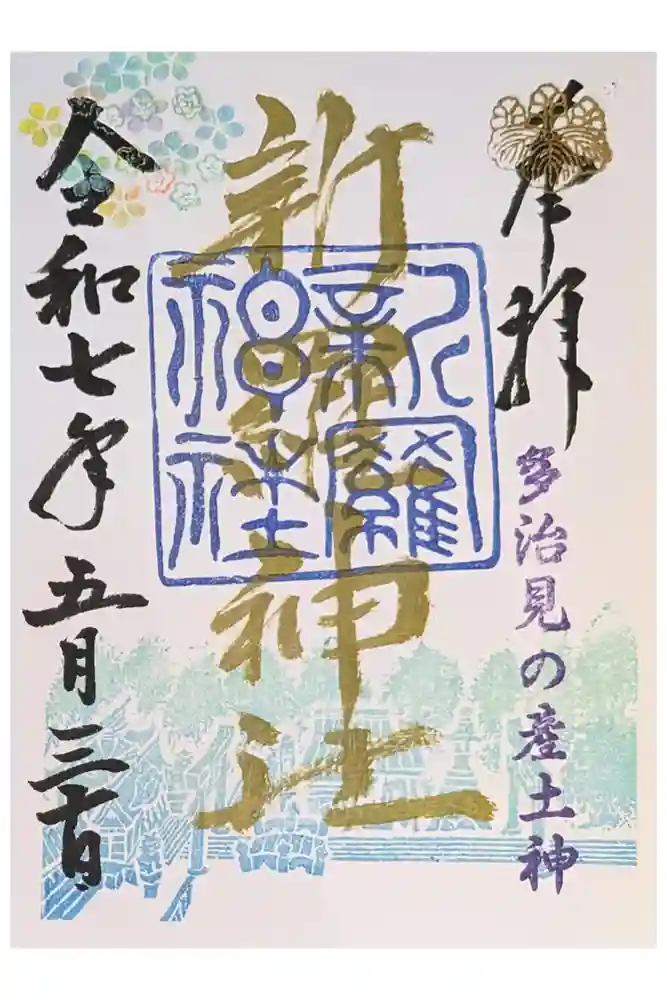 奉拝
多治見の産土神
新羅神社
新羅
神社
令和七年五月三十日